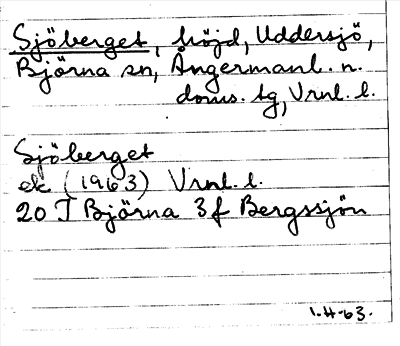 Sjöberget, höjd, Uddersjö,
Björna sn, Ångermanl. n.
doms. tg, Vrnl. l.
Sjöberget
ek (1963) Vrnl. l.
20 I Björna 3f Bergssjön
1-4-63.